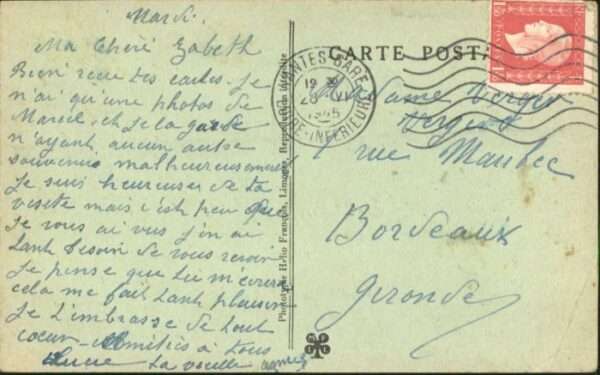 Mardi
Ma Chéré Zabeth
Bien recu tes cartes. Je
n'ai qu'une photos de
Marcel et Je la garde
n'ayant aucun autre
souvenirs malheureusement
Je suis heureuse de ta
visite mais c'est peu que
Je vous ai vus j'en ai
tant besoin de vous revoir
Je pense que tu m'écriras
cela me fait tant plaisir
Je t'embrasse de tout
coeur Amitiés à tous
Lucie ta vieille amie
Phototypie Hélio Français, Limoges, Reproduction interdite
CARTE POSTALE
NANTES-GARE
19
26 VI
1945
LOIRE-INFÉRIEURE
Madame Verger
Vergers
rue Maubec
Bordeaux
Gironde